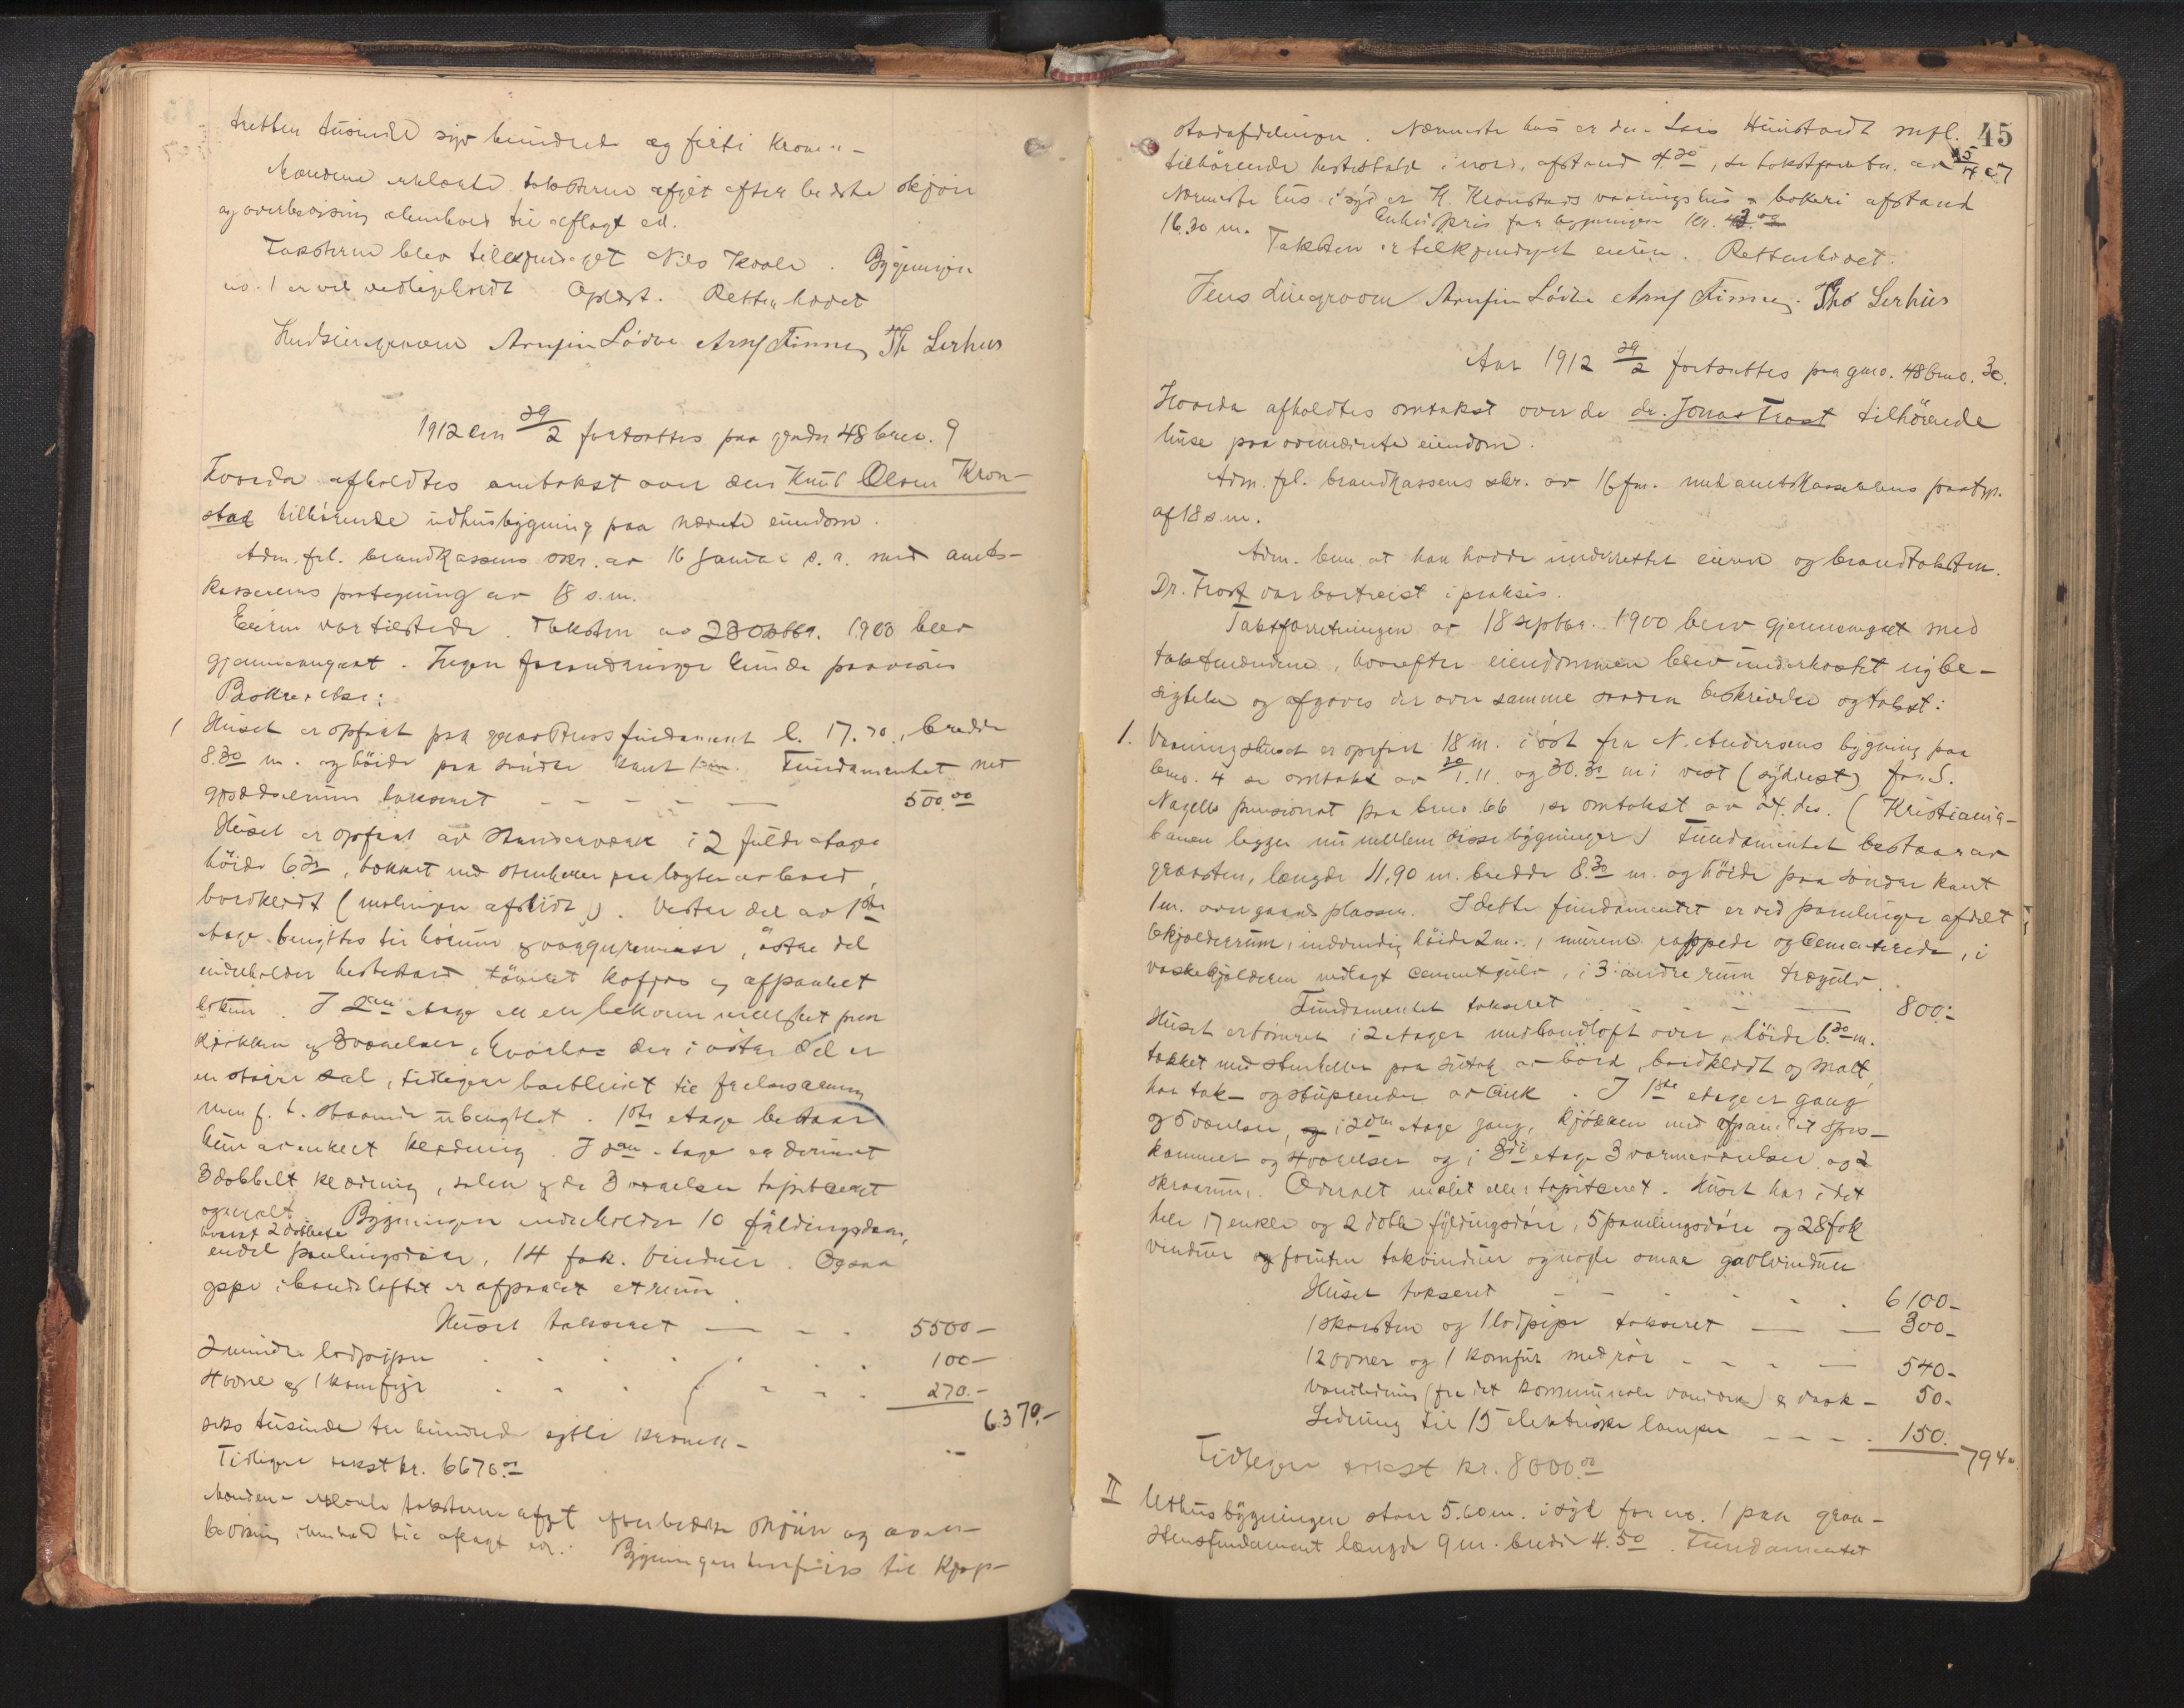 tretten tusinde syv hundrede og firti Kroner -
Mændene erklærte taksterne afgit efter bedste skjøn
og overbevisning i henhold til aflagt ed.
Taksterne blev tilkjendegivet Nils Kvale. Bygningen
no. 1 er vel vedligeholdt Oplæst. Retten hævet
Arnfin Lödve Arnf Finne Th Lerhus
1912 den 29/2 fortsattes paa gaardsnr 48 bno. 9
Hvorda afholdtes omtakst over den Knut Olsen Kron-
stad tilhörende udhusbygning paa nævnte eiendom.
Adm. frl. brandkassens skr. av 16 januar d. a. med amts-
kasserens paategning av 18 s.m.
Eieren var tilstede. Taksten av 23 Oktbr. 1900 blev
gjennemgaat. Ingen forandringer kunde paavises
Beskrivelse:
1 Huset er opført paa graastensfundament l. 17.70, bredde
8.30 m. og höide paa søndre kant 1 m. Fundamentet med
gjödselrum takseret - - - - 500.00
Huset er opført av stenderværk i 2 fulde etager
höide 6.20, tækket med stenheller paa lægter av bord,
bordklædt (malingen afslidt). Vestre del av 1ste
etage benyttes til hörum og vognremisse, östre del
indeholder hestestald tömret kofjös og afpanelet
lokum. I 2den etage er en bekvemmelighet paa
kjökken og 3 værelser, hvorhos der i östre del er
en större sal, tidligere bortleiet til frelsesarmeen
men f. t. staaende ubenyttet. 1ste etage bestaar
kun av enkelt klædning. I 2den etage er derimot
3 dobbelt klædning, salen og de 3 værelser tapetseret
og malt. Bygningen indeholder 10 fyldingsdøre,
hvoraf 2 dobbelte
endel panelingsdøre, 14 fak. vinduer. Ogsaa
oppe i bandloftet er afpanelet et rum.
Huset takseret - - - 5500 -
2 mindre lodpiper 100 -
4 ovne og 1 komfyr 270. -
6370.-
seks tusinde tre hundrede sytti kroner -
Tidligere takst kr. 6670.00
Mændene erklærte taksterne afgit efter bedste skjön og over-
bevisning i henhold til aflagt ed. Bygningen henføres til Kjøp-
45
stadafdelingen. Nærmeste hus er den Lars Hunstadt mfl.
tilhörende hestestald i nord, afstand 4.20, se takstforretn. av 25/11 07
Nærmeste hus i syd er K. Kronstads vaaningshus & bakeri afstand
16.30 m. Enhetspris for bygningen kr. 43.00
Taksten er tilkjendegivet eieren. Retten hævet.
Jens Arnfin Lödve Arnf Finne. Tho Lerhus
Aar 1912 29/2 fortsattes paa gno. 48 bno. 30.
Hvorda afholdtes omtakst over de dr. Jonas Frost tilhörende
huse paa ovennævnte eiendom.
Adm. frl. brandkassens skr. av 16 f.m. med amtskasserens paategn.
af 18 s.m.
Adm. bem. at han havde underrettet eieren og brandtaksten.
Dr. Frost var bortreist i praksis.
Takstforretningen av 18 septbr. 1900 blev gjennemgaat med
takstmændene, hvorefter eiendommen blev underkastet nöie be-
sigtelse og afgaves der over samme saadan beskrivelse og takst:
1. Vaaningshuset er opført 18 m. i öst fra N. Andersens bygning paa
bno. 4 se omtakst av 20/1. 11. og 30.30 m i vest (sydvest) for S.
Nagells pensionat paa bno. 66, se omtakst av dd. (Kristiania-
banen ligger nu mellem disse bygninger) Fundamentet bestaar av
graasten, længde 11,90 m. bredde 8.30 m. og höide paa söndre kant
1 m. over gaardsplassen. I dette fundamentet er ved panelinger afdelt
kjelderrum, indvendig höide 2 m., murene rappede og cementerede, i
vaskekjelderen nedlagt cementgulv, i 3 andre rum trægulv.
Fundamentet takseret - - 800.-
Huset er tömret i 2 etager med bandloft over, höide 6.30 m.
tækket med stenheller paa sutag av bord, bordklædt og malt,
har tak- og stuprender av zink. I 1ste etage er gang
og 5 værelser, i 2den etage gang, kjökken med afpanelet spis-
kammer og 4 værelser og i 3die etage 3 varmeværelser og 2
skraarum. Overalt malet eller tapetseret. Huset har i det
hele 17 enkle og 2 doble fyldingsdøre, 5 panelingsdøre og 28 fak
vinduer foruten takvinduer og nogle smaa gavlvinduer
Huset takseret - - 6100 -
1 skorsten og 1 lodpipe takseret - - 300 -
12 ovner og 1 komfur med rör - - 540 -
Vandledning (fra det kommunale vandverk) & vask - 50 -
Ledning til 15 elektriske lamper - - - 150.
7940
Tidligere takst kr. 8000.00
II Uthusbygningen staar 5.60 m. i syd for no. 1 paa graa-
stensfundament længde 9 m. bredde 4.50. Fundamentet